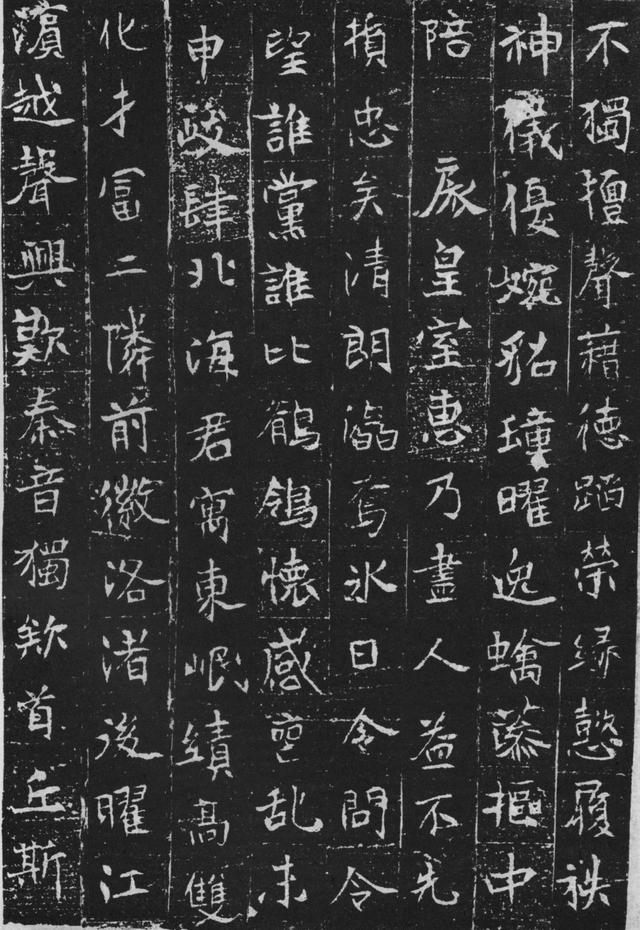 不獨擅聲藉德蹈榮緣懿履祑
神儀優婉貂璫曜逸螭蓀摳中
陪　　扆皇室惠乃盡人益不先
損忠矣清朗瀛鳶氷日令問令
望誰黨誰比鶺鴒懷感壺乱未
申峻肆北海君寓東岷績高雙
化才冨二隣前徽洛渚後曜江
濱越聲興歎秦音獨欸首丘斯